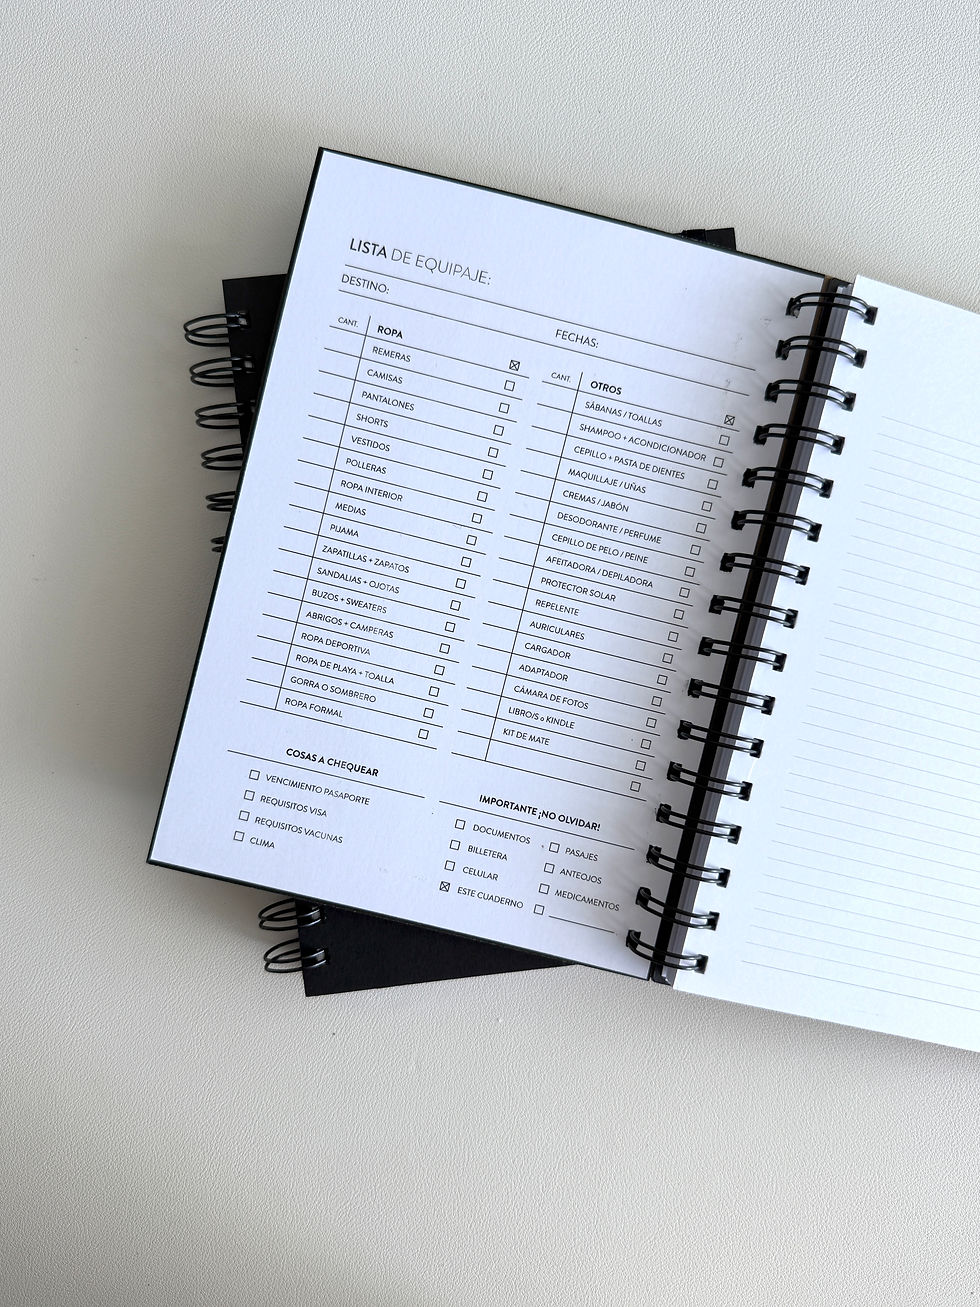 LISTA DE EQUIPAJE:
DESTINO:
FECHAS:
CANT. ROPA
REMERAS
CAMISAS
PANTALONES
SHORTS
VESTIDOS
POLLERAS
ROPA INTERIOR
MEDIAS
PIJAMA
ZAPATILLAS + ZAPATOS
SANDALIAS + OJOTAS
BUZOS + SWEATERS
ABRIGOS + CAMPERAS
ROPA DEPORTIVA
ROPA DE PLAYA + TOALLA
GORRA O SOMBRERO
ROPA FORMAL
CANT. OTROS
SÁBANAS / TOALLAS
SHAMPOO + ACONDICIONADOR
CEPILLO + PASTA DE DIENTES
MAQUILLAJE / UÑAS
CREMAS / JABÓN
DESODORANTE / PERFUME
CEPILLO DE PELO / PEINE
AFEITADORA / DEPILADORA
PROTECTOR SOLAR
REPELENTE
AURICULARES
CARGADOR
ADAPTADOR
CÁMARA DE FOTOS
LIBRO/S o KINDLE
KIT DE MATE
COSAS A CHEQUEAR
VENCIMIENTO PASAPORTE
REQUISITOS VISA
REQUISITOS VACUNAS
CLIMA
IMPORTANTE ¡NO OLVIDAR!
DOCUMENTOS
BILLETERA
CELULAR
ESTE CUADERNO
PASAJES
ANTEOJOS
MEDICAMENTOS